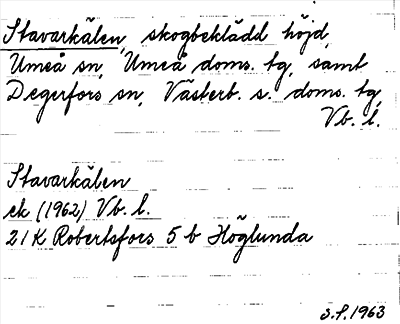 Stavarkälen, skogbeklädd höjd,
Umeå sn, Umeå doms. tg, samt
Degerfors sn, Västerb. s. doms. tg,
Vb. l.
Stavarkälen
ek (1962) Vb. l.
21K Robertsfors 5 b Höglunda
S.S. 1963